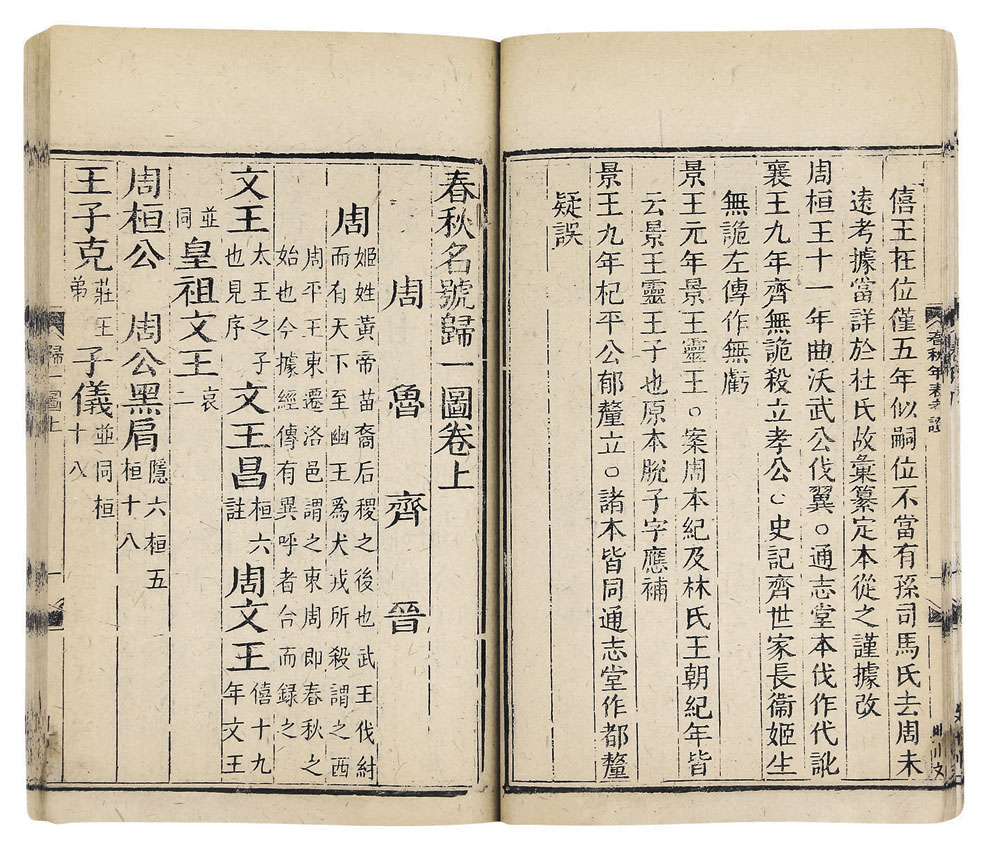 僖王在位僅五年似嗣位不當有孫司馬氏去周未
遠考據當詳於杜氏故彙纂定本從之謹據改
周桓王十一年曲沃武公伐翼○通志堂本伐作代訛
襄王九年齊無詭殺立孝公○史記齊世家長衞姬生
無詭左傳作無虧
景王元年景王靈王○案周本紀及林氏王朝紀年皆
云景王靈王子也原本脫子字應補
景王九年杞平公郁釐立○諸本皆同通志堂作都釐
疑誤
春秋年表考證
春秋名號歸一圖卷上
周 魯 齊 晉
周 姬姓黃帝苗裔后稷之後也武王伐紂
而有天下至幽王爲犬戎所殺謂之西
周平王東遷洛邑謂之東周即春秋之
始也今據經傳有異呼者合而録之
文王 太王之子也見序 文王昌 桓六註 周文王 僖十九年文王
並同 皇祖文王 哀二
周桓公 周公黑肩 隱六桓五桓十八
王子克 莊王弟 子儀 並同桓十八
歸一圖上
一